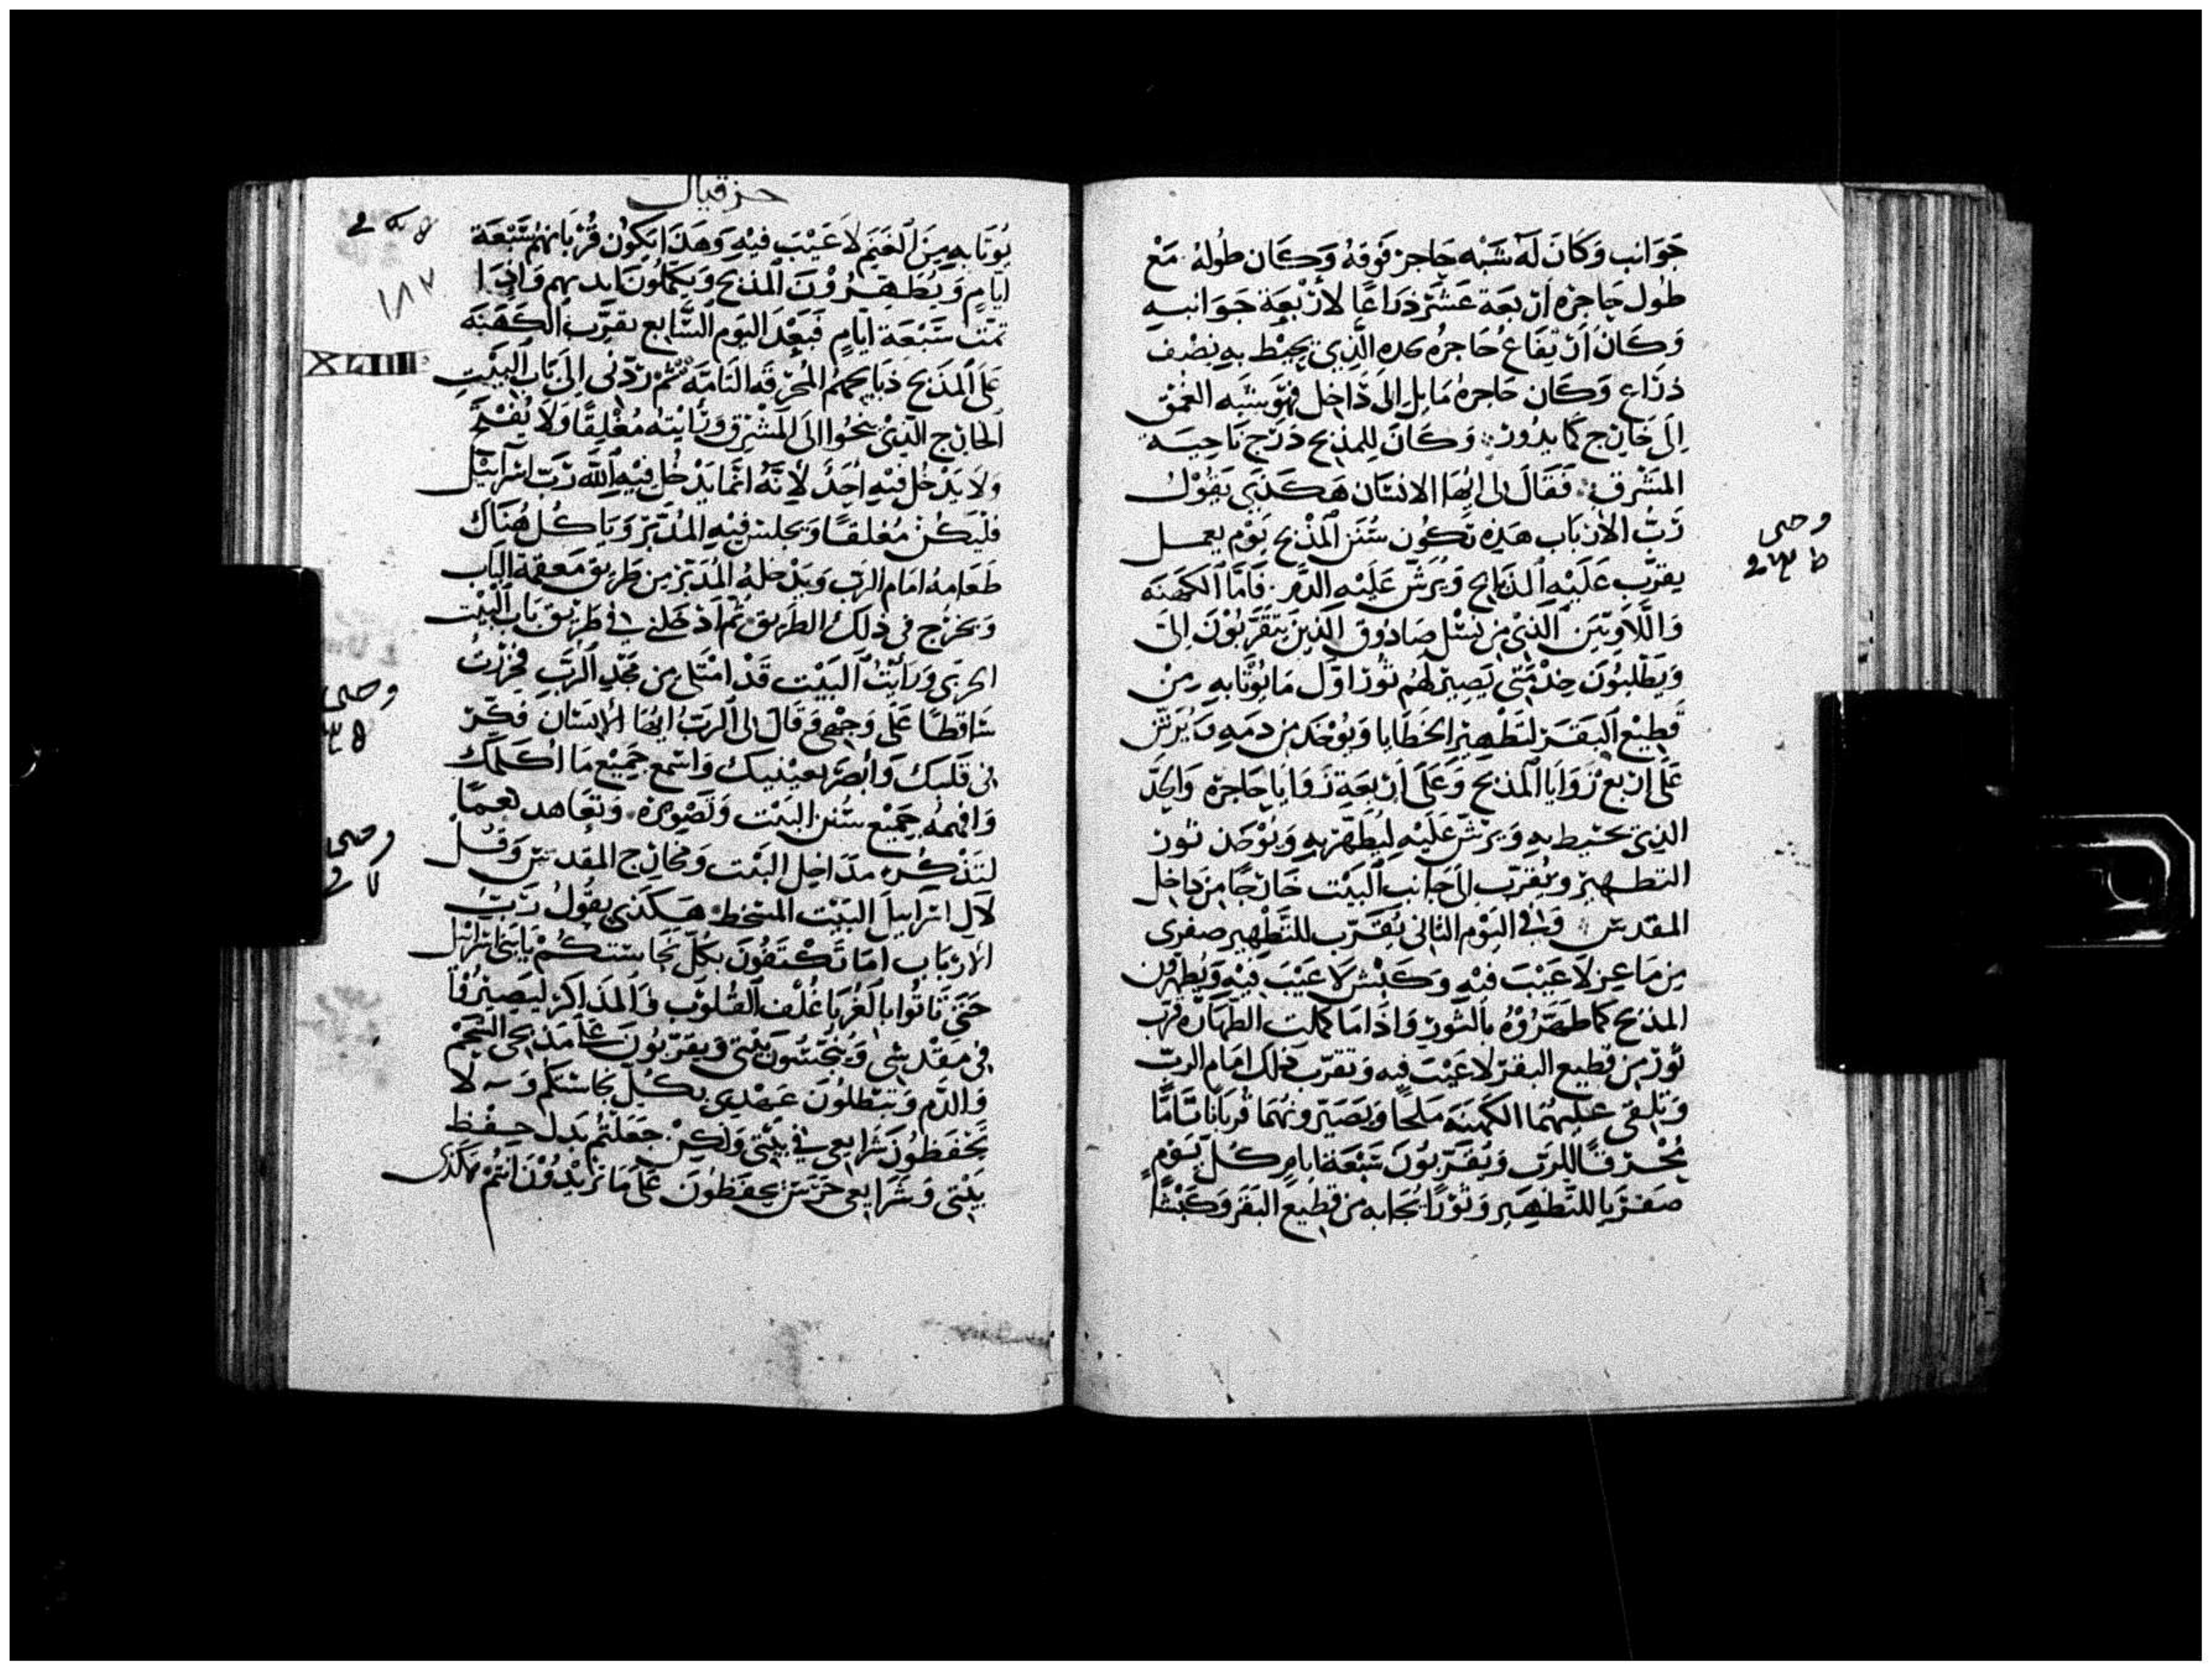 جَوَانب وَكَانَ لَهُ شَبْه حَاجز فَوقهُ وَكَان طُولهُ مَعْ
طُول حَاجزه اربعَة عَشَر ذرَاعًا لأربْعَة جَوَانبهِ
وَكَانَ ارتفَاعُ حَاجزه الَّذِي يحِيْط بهِ نصْف
ذرَاع وَكَان حَاجزهُ مَايل الىَ دَاخل فهُو شبَه العُمْق
الىَ خَارج كما يدُور وَكَانَ للمذبح دَرج نَاحيَـة
المَشرق فَقَالَ لى ايُّهَا الانسَان هَكَذَى يقُول
رَبُّ الأربَاب هَذِه تكُون سُنَن المذْبح يَوْم يعمـل
يقرَّب عَلَيْهِ الذبَايح وَيُرَشّ عَلَيْه الدَّم فَامَّا الكهَنَه
وَاللَّاوِيّين الذيْ من نسْل صَادُوق الّذينَ يتقَرَّبُوْنَ الىَ
وَيَطْلبُونَ خدْمَتي يَصِير لَهُم ثَوْر اوَّل مَا يُوْتَا بهِ مِنْ
قطِيْع البَقَـر لتَطْهير الخَطَايا وَيُوْخَد من دَمهِ وَيُرَشّ
عَلَى اربَع زَوَايا المذبح وَعَلَى اربَعَة زَوَايا حَاجزه وَالحدّ
الذِي يحيْط بهِ وَيرَشّ عَلَيْهِ ليُطَهَّر بهِ وَيُوْخَد ثَور
التطـهير وَيُقرّب الىَ جَانب البَيْت خَارجًا من دَاخل
المقدس وَفى اليَوْم الثانى يُقَـرَّب للتَّطْهِير صفرى
من مَاعِز لَا عَيْبَ فيْهِ وَكَبْش لَا عَيْبَ فِيْهِ وَيُطهِّرون
المذبح كما طهَّرُوْهُ بالثوْر وَاذَا مَا كملَت الطهَارَه قرّب
ثَوْر من قطيع البقرْ لا عَيْبَ فيهِ وَتقرّب ذلك امَام الربّ
وَيَلقى عَليهُمَا الكَهنَه مَلحًا وَيصَيّرونهُمَا قربَانًا تامًّا
مُحْـرقًـا للرَّب وَيُقَـرّبُوْنَ سَبْعَة ايَّام كـُلّ يَوْمٍ
صَفـرَيا للتَّطهِير وَثَوْرًا يُجَابه من قطِيع البَقَر وَكَبْشًا
وحى
حزقيال
يُوتَا بهِ مِنَ الغَنَم لَا عَيْبَ فيْهِ وَهَذَا يَكُوْن قُرْبَانهُم سَبْعَة
ايَّامٍ وَيُطَـهِّـرُوْنَ المذبح وَيكمّلُونَ ايديهم وَاذَا
١٨٧
تمَّت سَبْعَة ايَّامٍ فَبَعْدَ اليَوم السَّابع يقرّب الكَهَنَه
XLIIII
عَلَى المَذبَح ذبَايحهُم المُحرقَه التَامَّه ثُمَّ ردّني الىَ بَاب البَيْتِ
الخَارج الّذيْ ينحُوا الىَ المَشْرق وَرَايْتهُ مُغلِقًا وَلَا يُفْتَح
وَلَا يَدْخُل فيْهِ احَدٌ لأنّهُ انّمَا يَدْخُل فِيْهِ اللّه رَبّ اسْرَآئيْل
فليَكُنْ مُغلقًـا وَيجلس فِيْهِ المُدَبّر وَيَاكُل هُنَاك
طَعَامهُ امَام الرَّب وَيَدْخلهُ المُدَبّر من طَريق مَعقمَة البَاب
وَيخرُج فى ذَلكَ الطَريق ثُمَّ ادْخَلنى فى طَريْق بَاب البَيْت
الجربى وَرَايْتُ البَيْت قَدْ امْتَلى من مَجْدِ الرَّبّ فخَررْتُ
سَاقطًا عَلَى وَجهى وَقَالَ لى الرَّبّ ايُّهَا الإنسَان فَكّرْ
وحى
فى قلبكَ وَابْصر بعيْنيك وَاسْمع جَميْع مَا اكلمكَ
وَافهمهُ جَميْع سُنَن البَيْت وَتصْويرهُ وَتعَاهد نعمًا
وحى
لتَذْكره مدَاخل البَيْت وَمخَارج المقدس وَقُـل
لآل اسرَاييل البَيْت المسْخط هَـكَذَى يقُولُ رَبّ
الأربَاب امَا تَكْتَفُونَ بكُلّ نجَاستكُمْ يَا بَني اسْرَائيل
حَتى تَاتُوا بالغُربَا غُلف القُلُوب وَالمَذاكر ليَصِيْرُوا
فى مقدسى وَيُنجّسُوْنَ بَيْتى وَيقرّبُوْنَ عَلى مَذبَحى الشحم
وَالدّم وَيُبْطلُونَ عَـهْدي بكُـلّ نجَاستكم وَ لَا
تحْفَظُوْنَ شَرَايعى فى بَيْتى وَلَكِنْ جَعَلْتُم بَدل حِـفْـظ
بَيْتى وَشَرَايعى حَرَس يحفَظُوْنَ عَلَى مَا تريْدُوْنَ انتُمْ هكَذَى